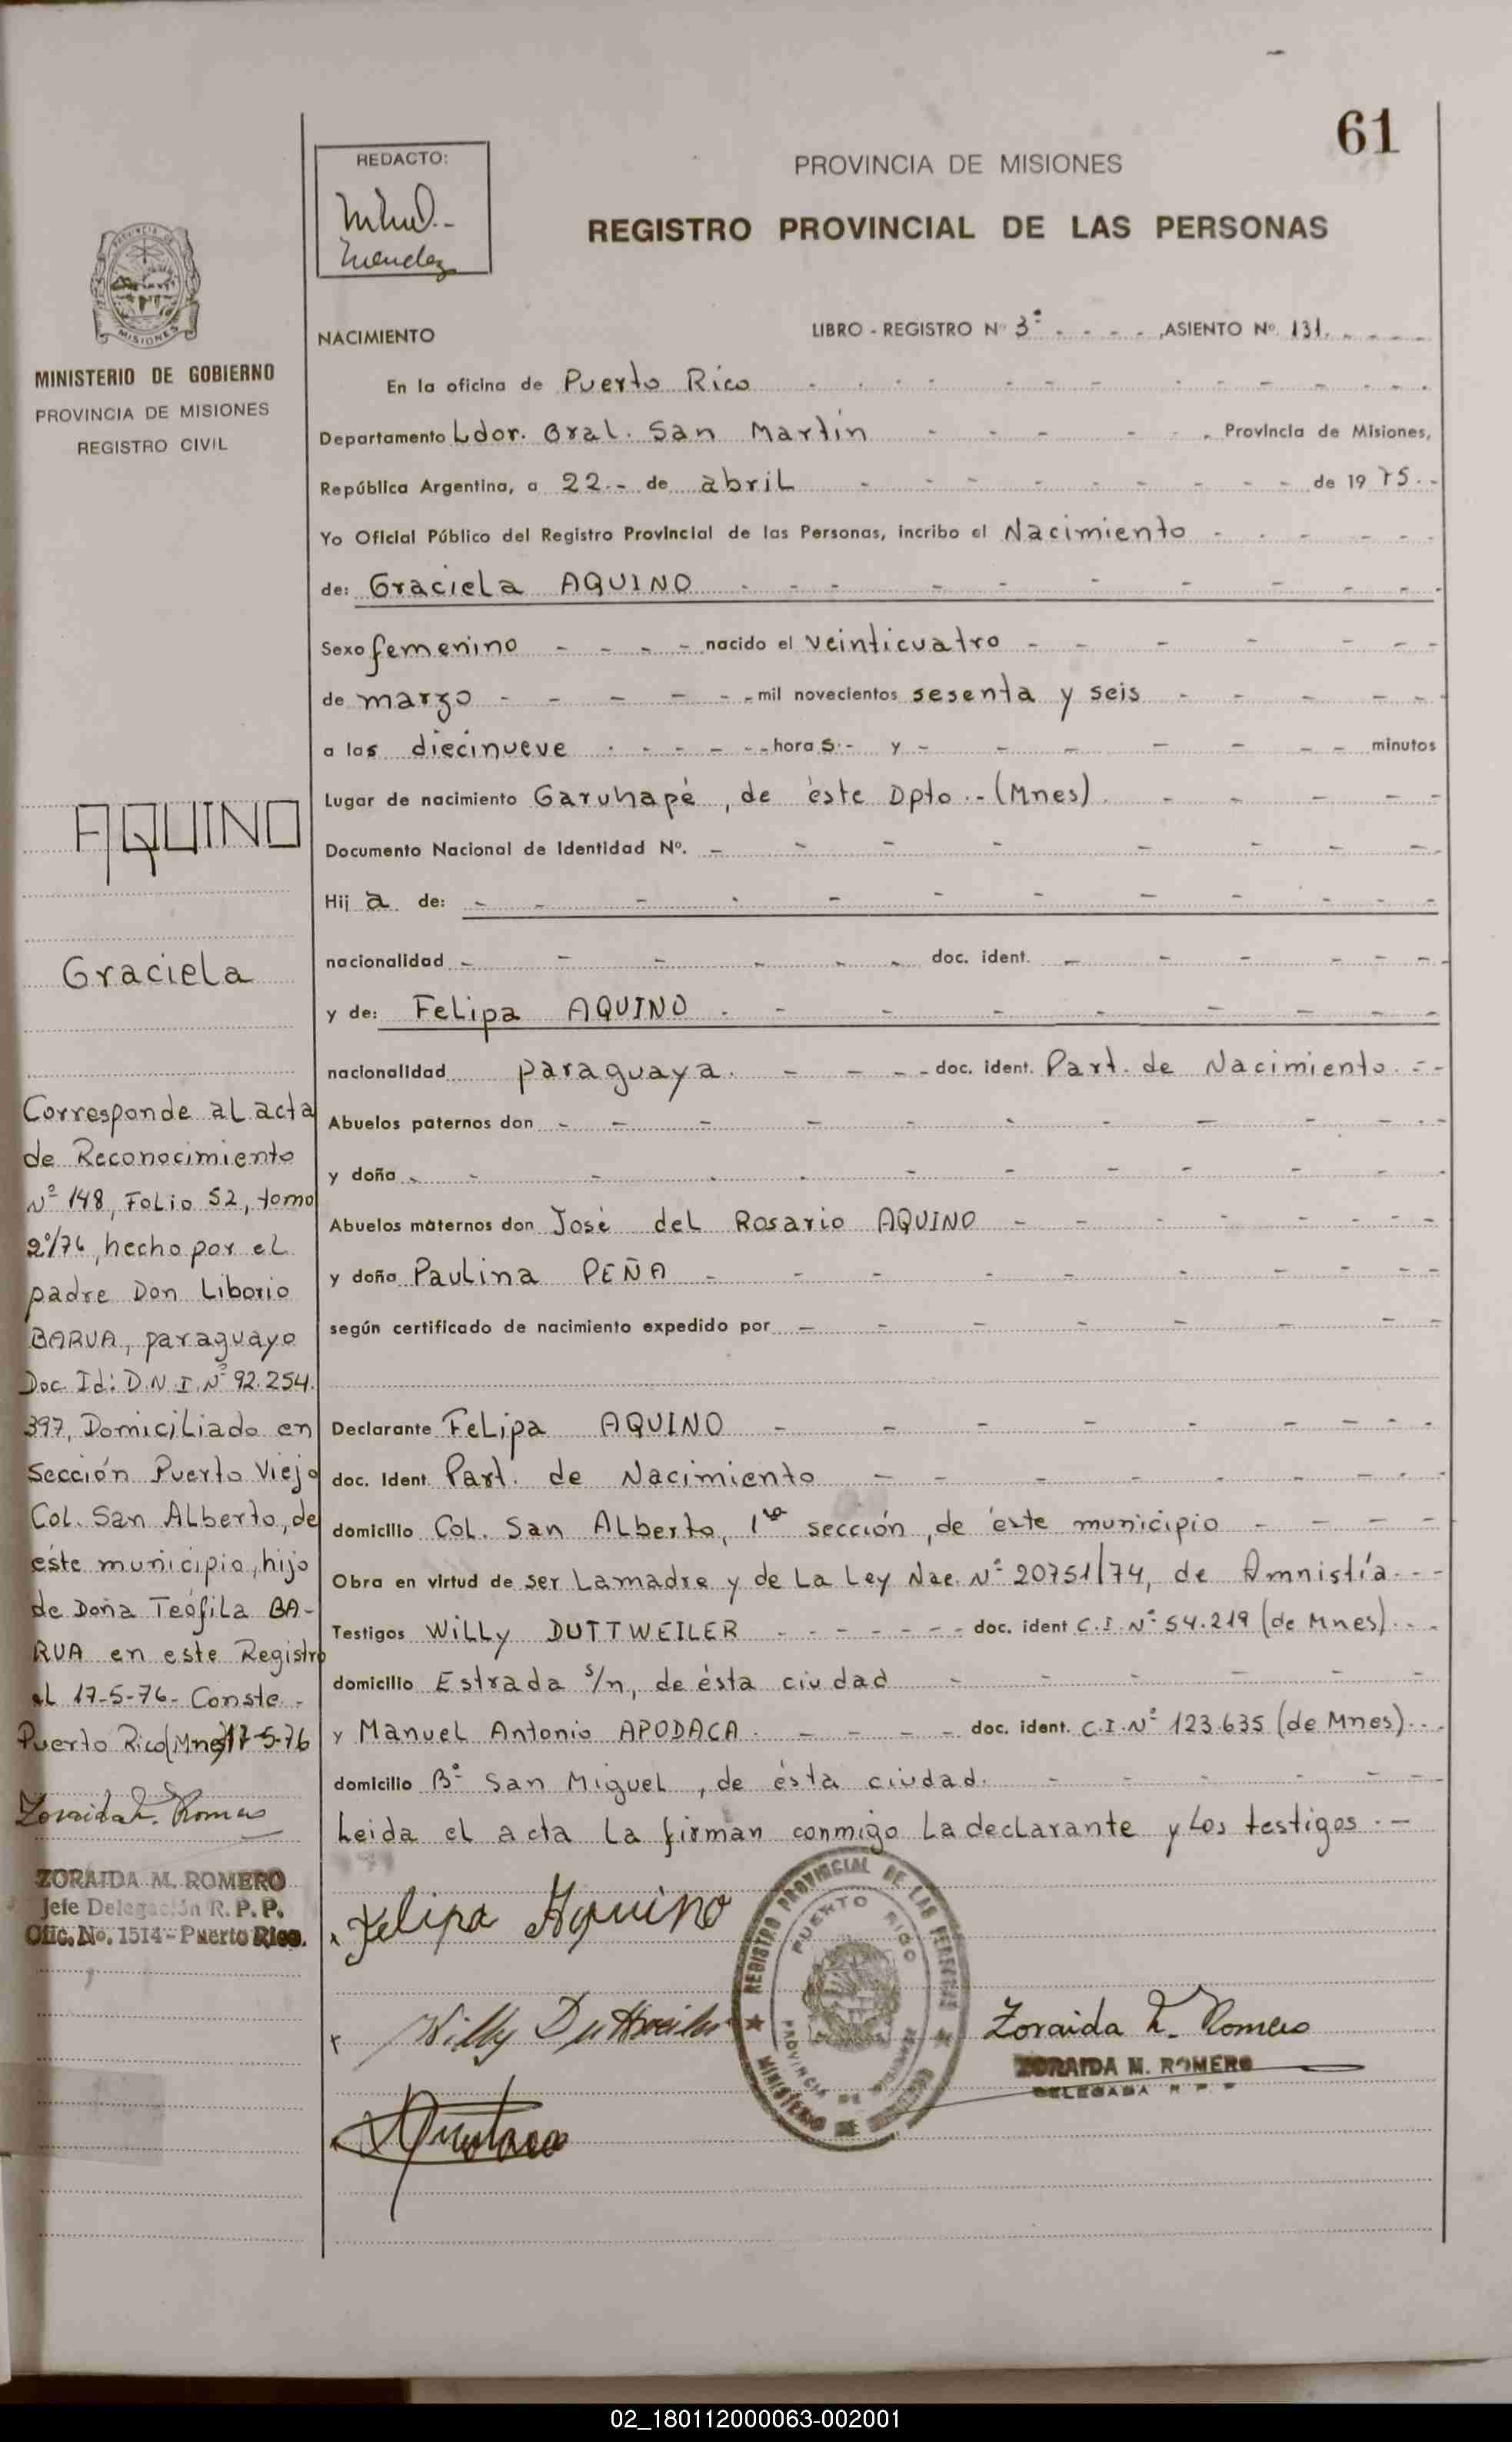 61
REDACTO:
Mendez
PROVINCIA DE MISIONES
REGISTRO PROVINCIAL DE LAS PERSONAS
MISIONES
MINISTERIO DE GOBIERNO
PROVINCIA DE MISIONES
REGISTRO CIVIL
NACIMIENTO
LIBRO - REGISTRO Nº 3º - - - - , ASIENTO Nº 131. - - - -
En la oficina de Puerto Rico
Departamento Ldor. Gral. San Martín - - - - - , Provincia de Misiones,
República Argentina, a 22.- de abril - - - - de 1975.-
Yo Oficial Público del Registro Provincial de las Personas, incribo el Nacimiento
de: Graciela AQUINO
Sexo femenino - - - - nacido el veinticuatro
de marzo - - - - - mil novecientos sesenta y seis
a las diecinueve - - - - - horas.- y - - - - minutos
Lugar de nacimiento Garuhapé, de éste Dpto.-(Mnes).
Documento Nacional de Identidad Nº. -
Hija de: -
nacionalidad - - - - doc. ident. -
y de: Felipa AQUINO
nacionalidad paraguaya. - - - - doc. ident. Part. de Nacimiento.--
Abuelos paternos don -
y doña -
Abuelos maternos don José del Rosario AQUINO
y doña Paulina PEÑA
según certificado de nacimiento expedido por -
Declarante Felipa AQUINO
doc. ident. Part. de Nacimiento
domicilio Col. San Alberto, 1ra sección, de éste municipio
Obra en virtud de ser La madre y de La Ley Nac. Nº 20751/74, de Amnistía.--
Testigos Willy DUTTWEILER - - - - - - doc. ident C.I. Nº 54.219 (de Mnes).--
domicilio Estrada s/n, de ésta ciudad
y Manuel Antonio APODACA. - - - - doc. ident. C.I. Nº 123.635 (de Mnes)...
domicilio Bº San Miguel, de ésta ciudad.
Leida el acta la firman conmigo La declarante y Los testigos.-
Felipa Aquino
Willy Duttweiler
REGISTRO PROVINCIAL DE LAS PERSONAS
PUERTO RICO
PROVINCIA DE MISIONES
MINISTERIO DE GOBIERNO
Zoraida M. Romero
ZORAIDA M. ROMERO
DELEGADA R P P
AQUINO
Graciela
Corresponde al acta
de Reconocimiento
Nº 148, Folio 52, tomo
2º/76, hecho por el
padre Don Liborio
BARUA, paraguayo
Doc. Id: D.N.I. Nº 92.254.
397, Domiciliado en
Sección Puerto Viejo
Col. San Alberto, de
éste municipio, hijo
de Doña Teófila BA-
RUA en este Registro
el 17-5-76- Conste.-
Puerto Rico (Mnes) 17-5-76
Zoraida M. Romero
ZORAIDA M. ROMERO
Jefe Delegación R. P. P.
Ofic. No. 1514 - Puerto Rico.
02_180112000063-002001